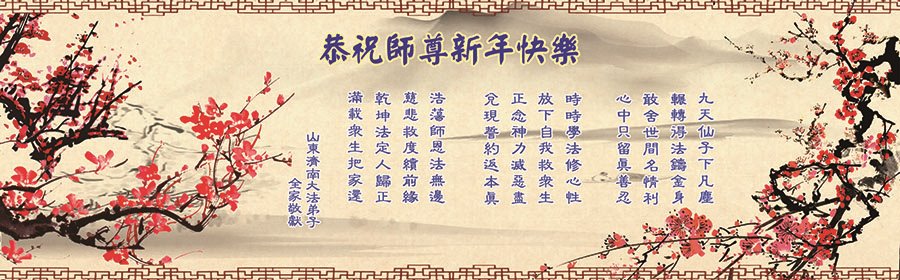 恭祝師尊新年快樂
九天仙子下凡塵
輾轉得法鑄金身
敢舍世間名情利
心中只留真善忍
時時學法修心性
放下自我救衆生
正念神力滅惡盡
兌現誓約返本真
浩蕩師恩法無邊
慈悲救度續前緣
乾坤法定人歸正
滿載衆生把家還
山東濟南大法弟子
全家敬獻